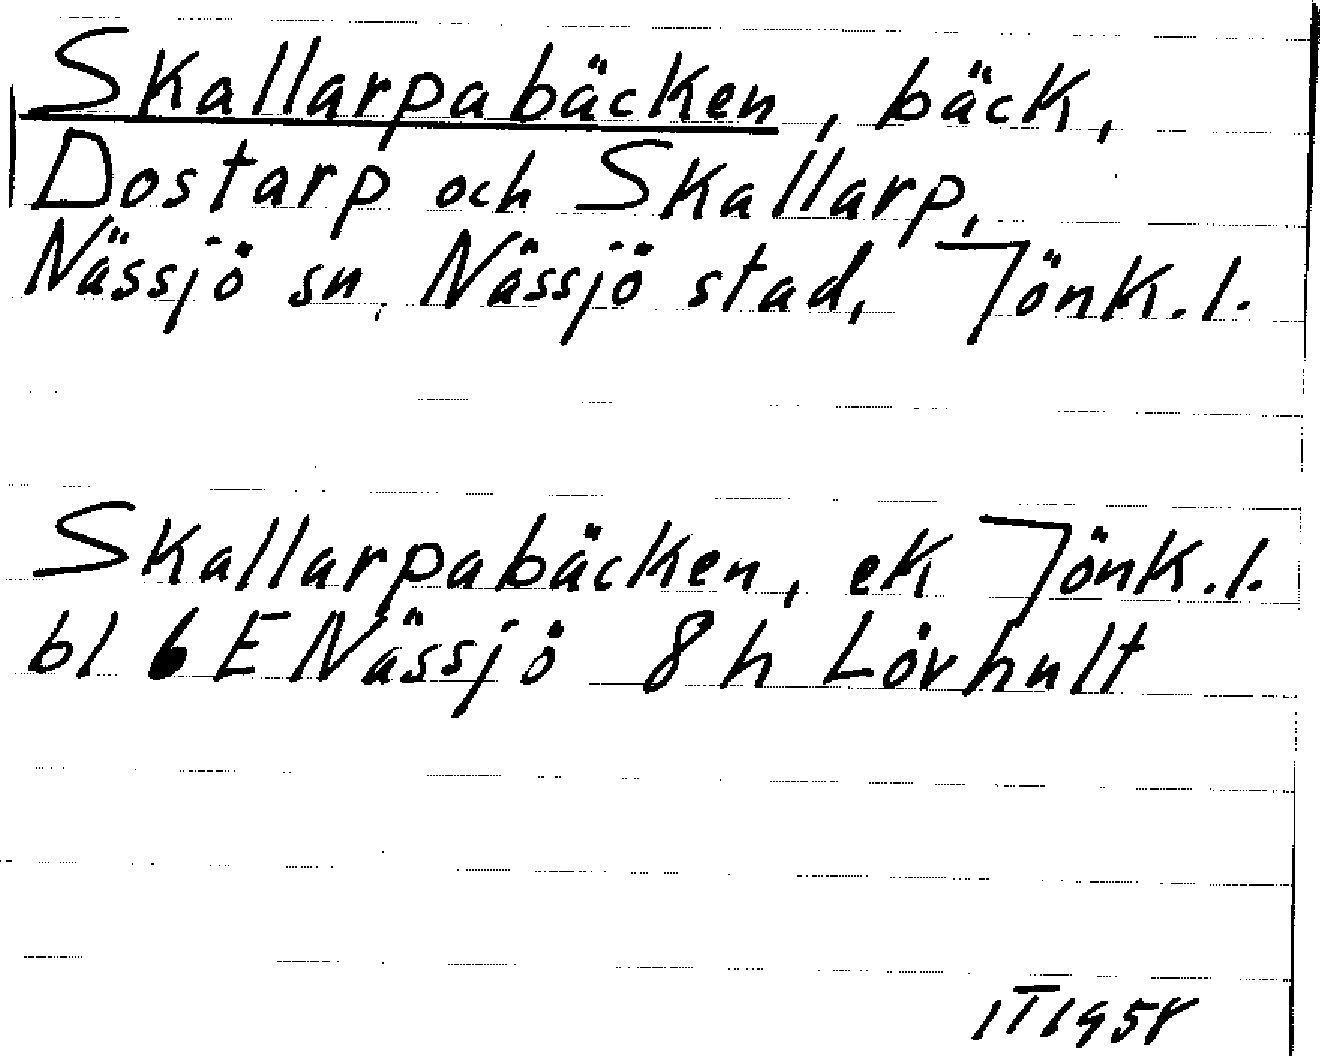 Skallarpabäcken, bäck,
Dostarp och Skallarp,
Nässjö sn, Nässjö stad, Jönk.l.
Skallarpabäcken, ek Jönk.l.
bl 6E Nässjö 8h Lövhult
1958